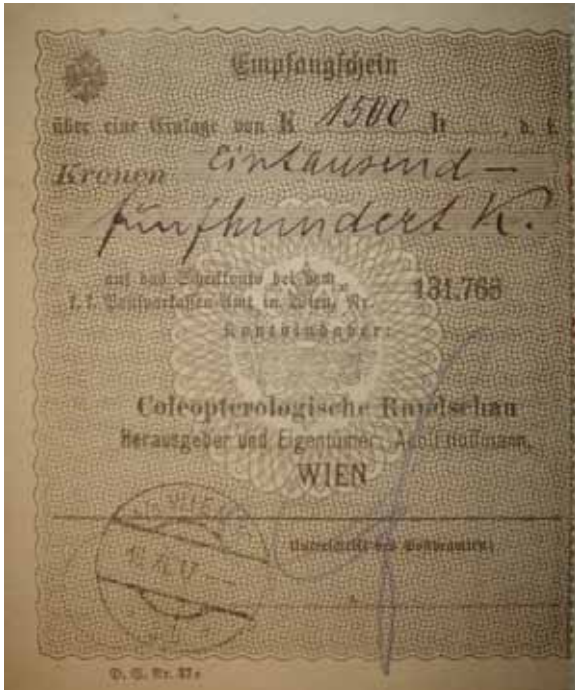 Empfangschein
über eine Einlage von K 1500 h , d. i.
Kronen Eintausend –
fünfhundert K.
auf das Scheckkonto bei dem
k. k. Postsparkassen-Amt in Wien, Nr. 131.768
Kontoinhaber:
Coleopterologische Rundschau
Herausgeber und Eigentümer: Adolf Hoffmann,
WIEN
WIEN
(Unterschrift des Postbeamten)
D. S. Nr. 37